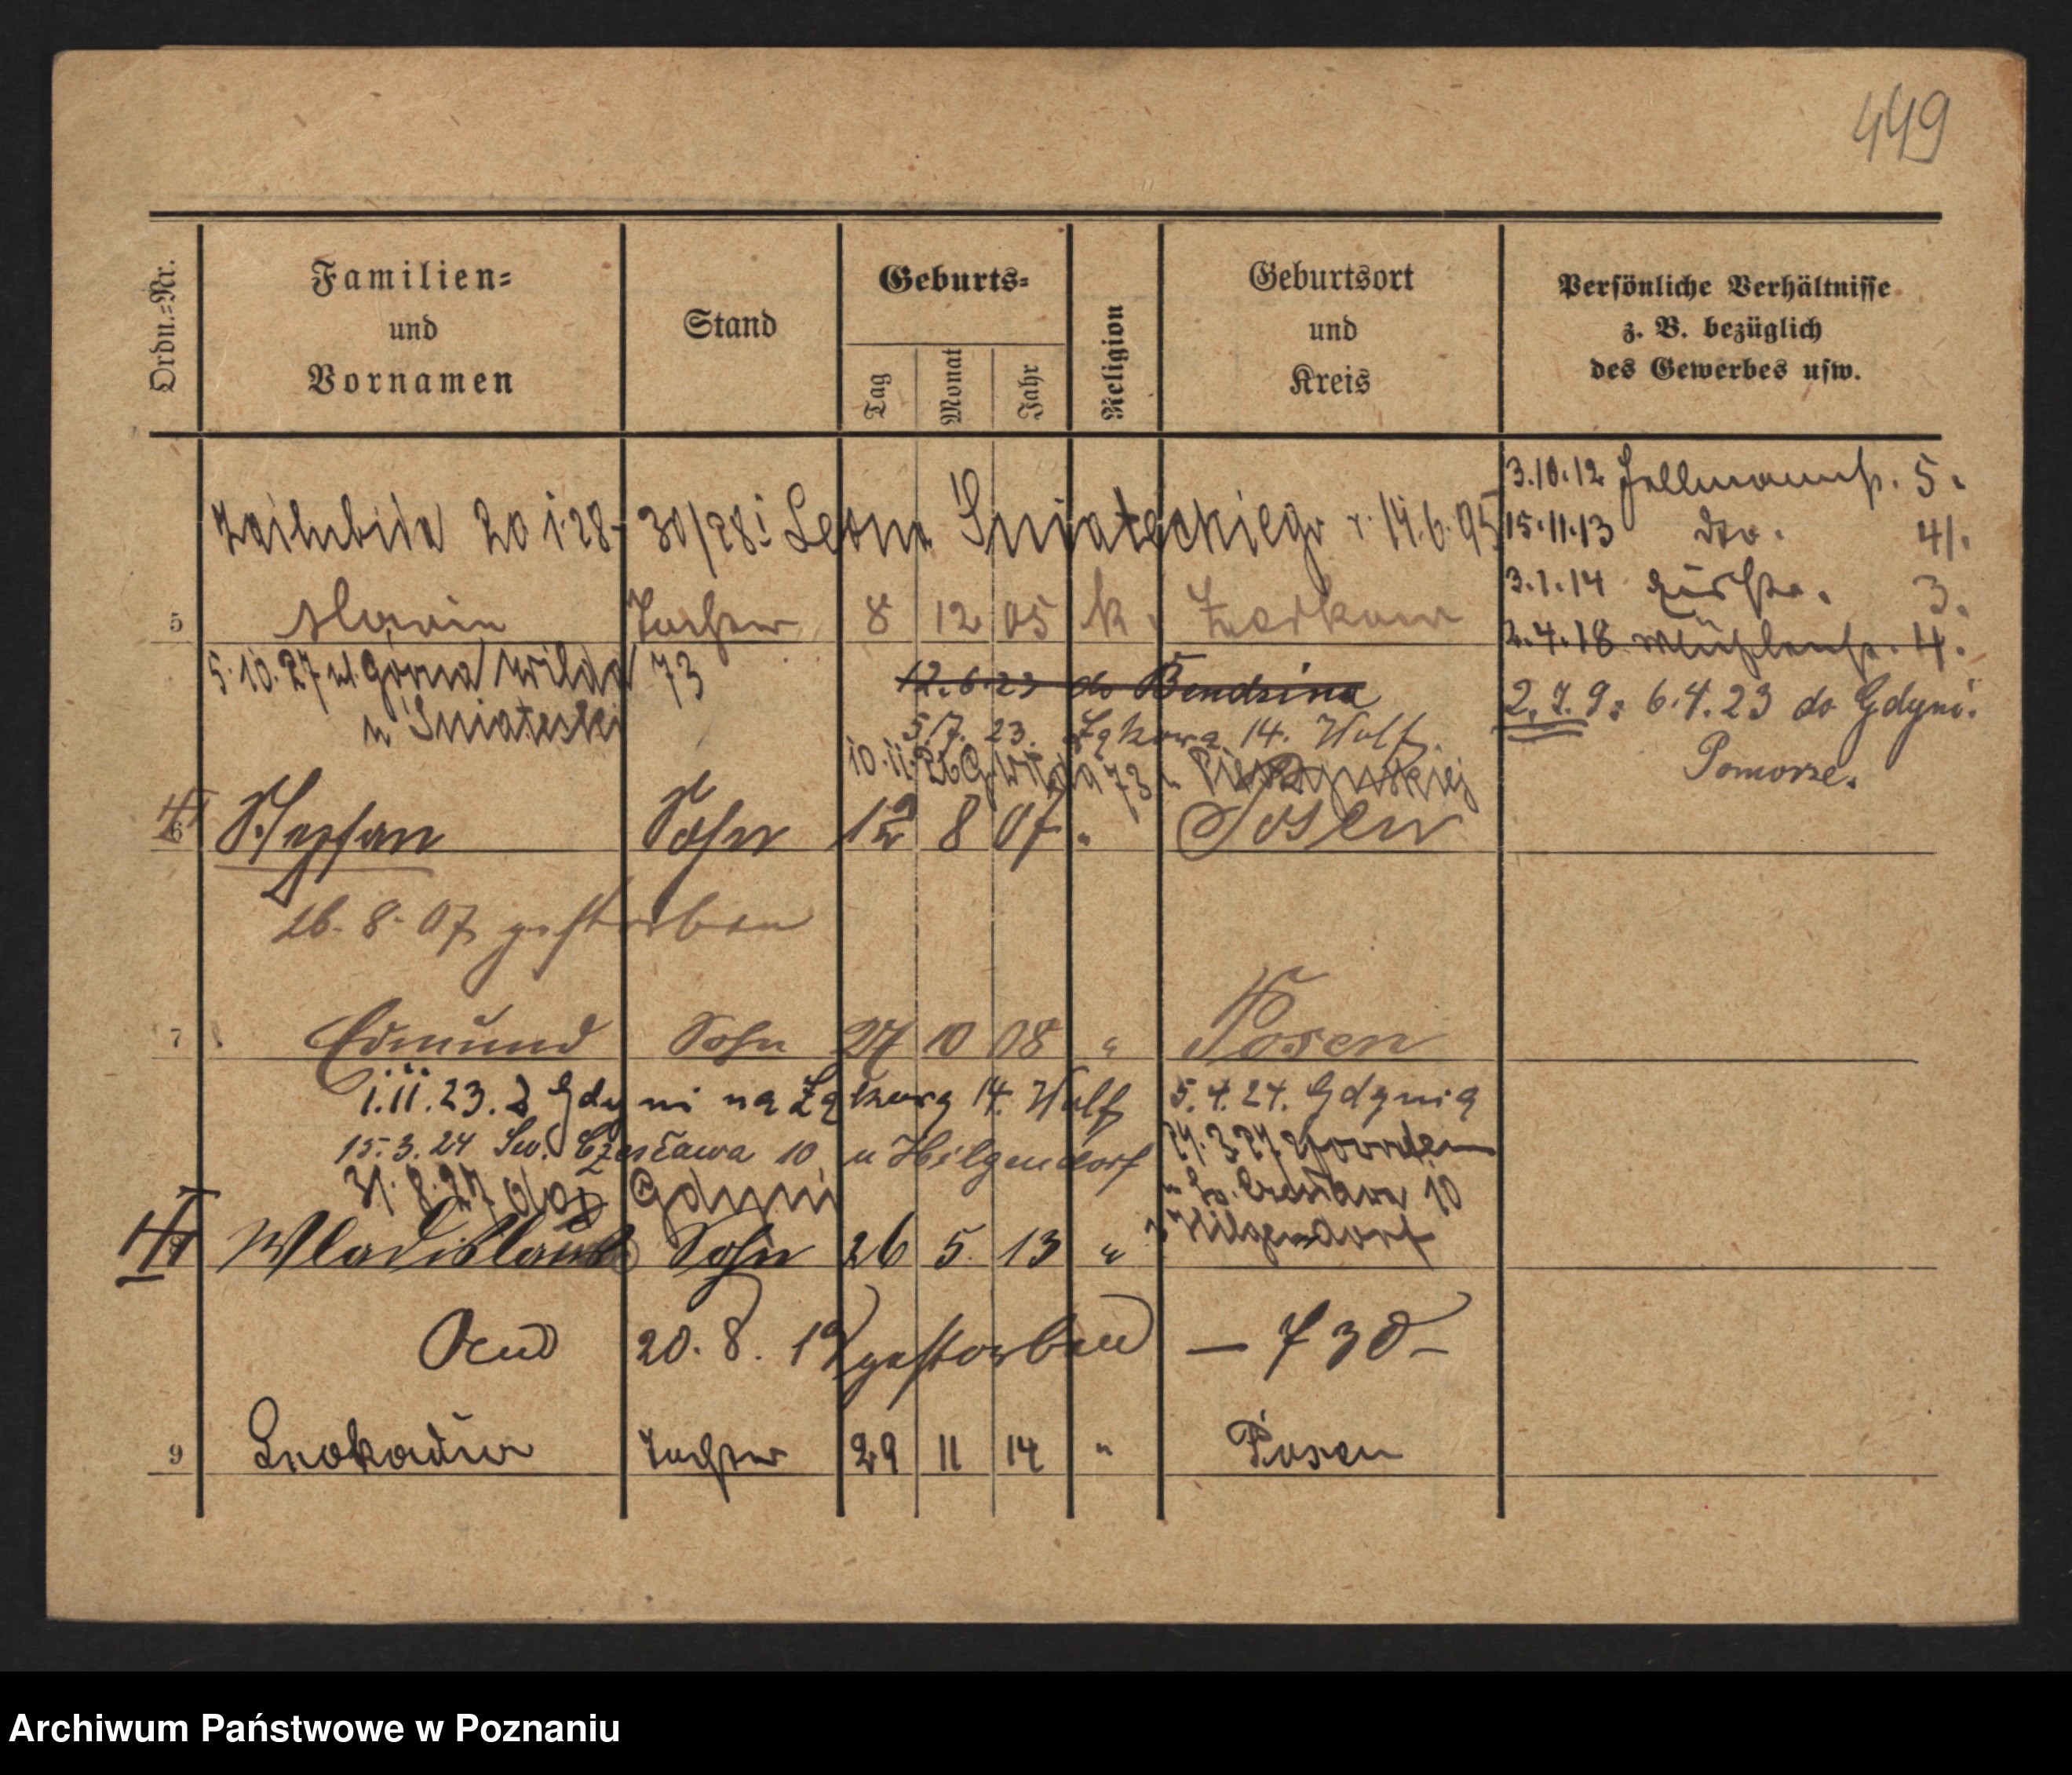 449
Ordn.=Nr.
Familien=
und
Vornamen
Stand
Geburts=
Tag
Monat
Jahr
Religion
Geburtsort
und
Kreis
Persönliche Verhältnisse
z. B. bezüglich
des Gewerbes usw.
3.10.12 5.
20 1.28 30/28 Leona Śniateckiego 14.6.95
15.11.13 dto. 41.
3.1.14 3.
5 Maria Tochter 8 12 05 k.
2.4.18 Mühlenstr. 4.
5.10.27 ul. Górna Wilda 73
u Śniatecki
12.6.23 do Bendzina
2, 7, 9: 6.4.23 do Gdyni.
Pomorze.
5.7. 23. Łąkowa 14. Wolf.
10.11.26 G. Wilda 73 u
6 Stephan Sohn 12 8 07 " Posen
26.8.07 gestorben
7 Edmund Sohn 27 10 08 " Posen
1.11.23. z Gdyni na Łąkową 14. Wolff
5.4.24. Gdynia
15.3.24 Św. Czesława 10 u Hilgendorf
31.8.27 do Gdyni
Czesława 10
Hilgendorf
Wladislaus Sohn 26 5. 13 "
20.8.19 gestorben — 730 —
9 Leokadia Tochter 29 11 14 " Posen
Archiwum Państwowe w Poznaniu